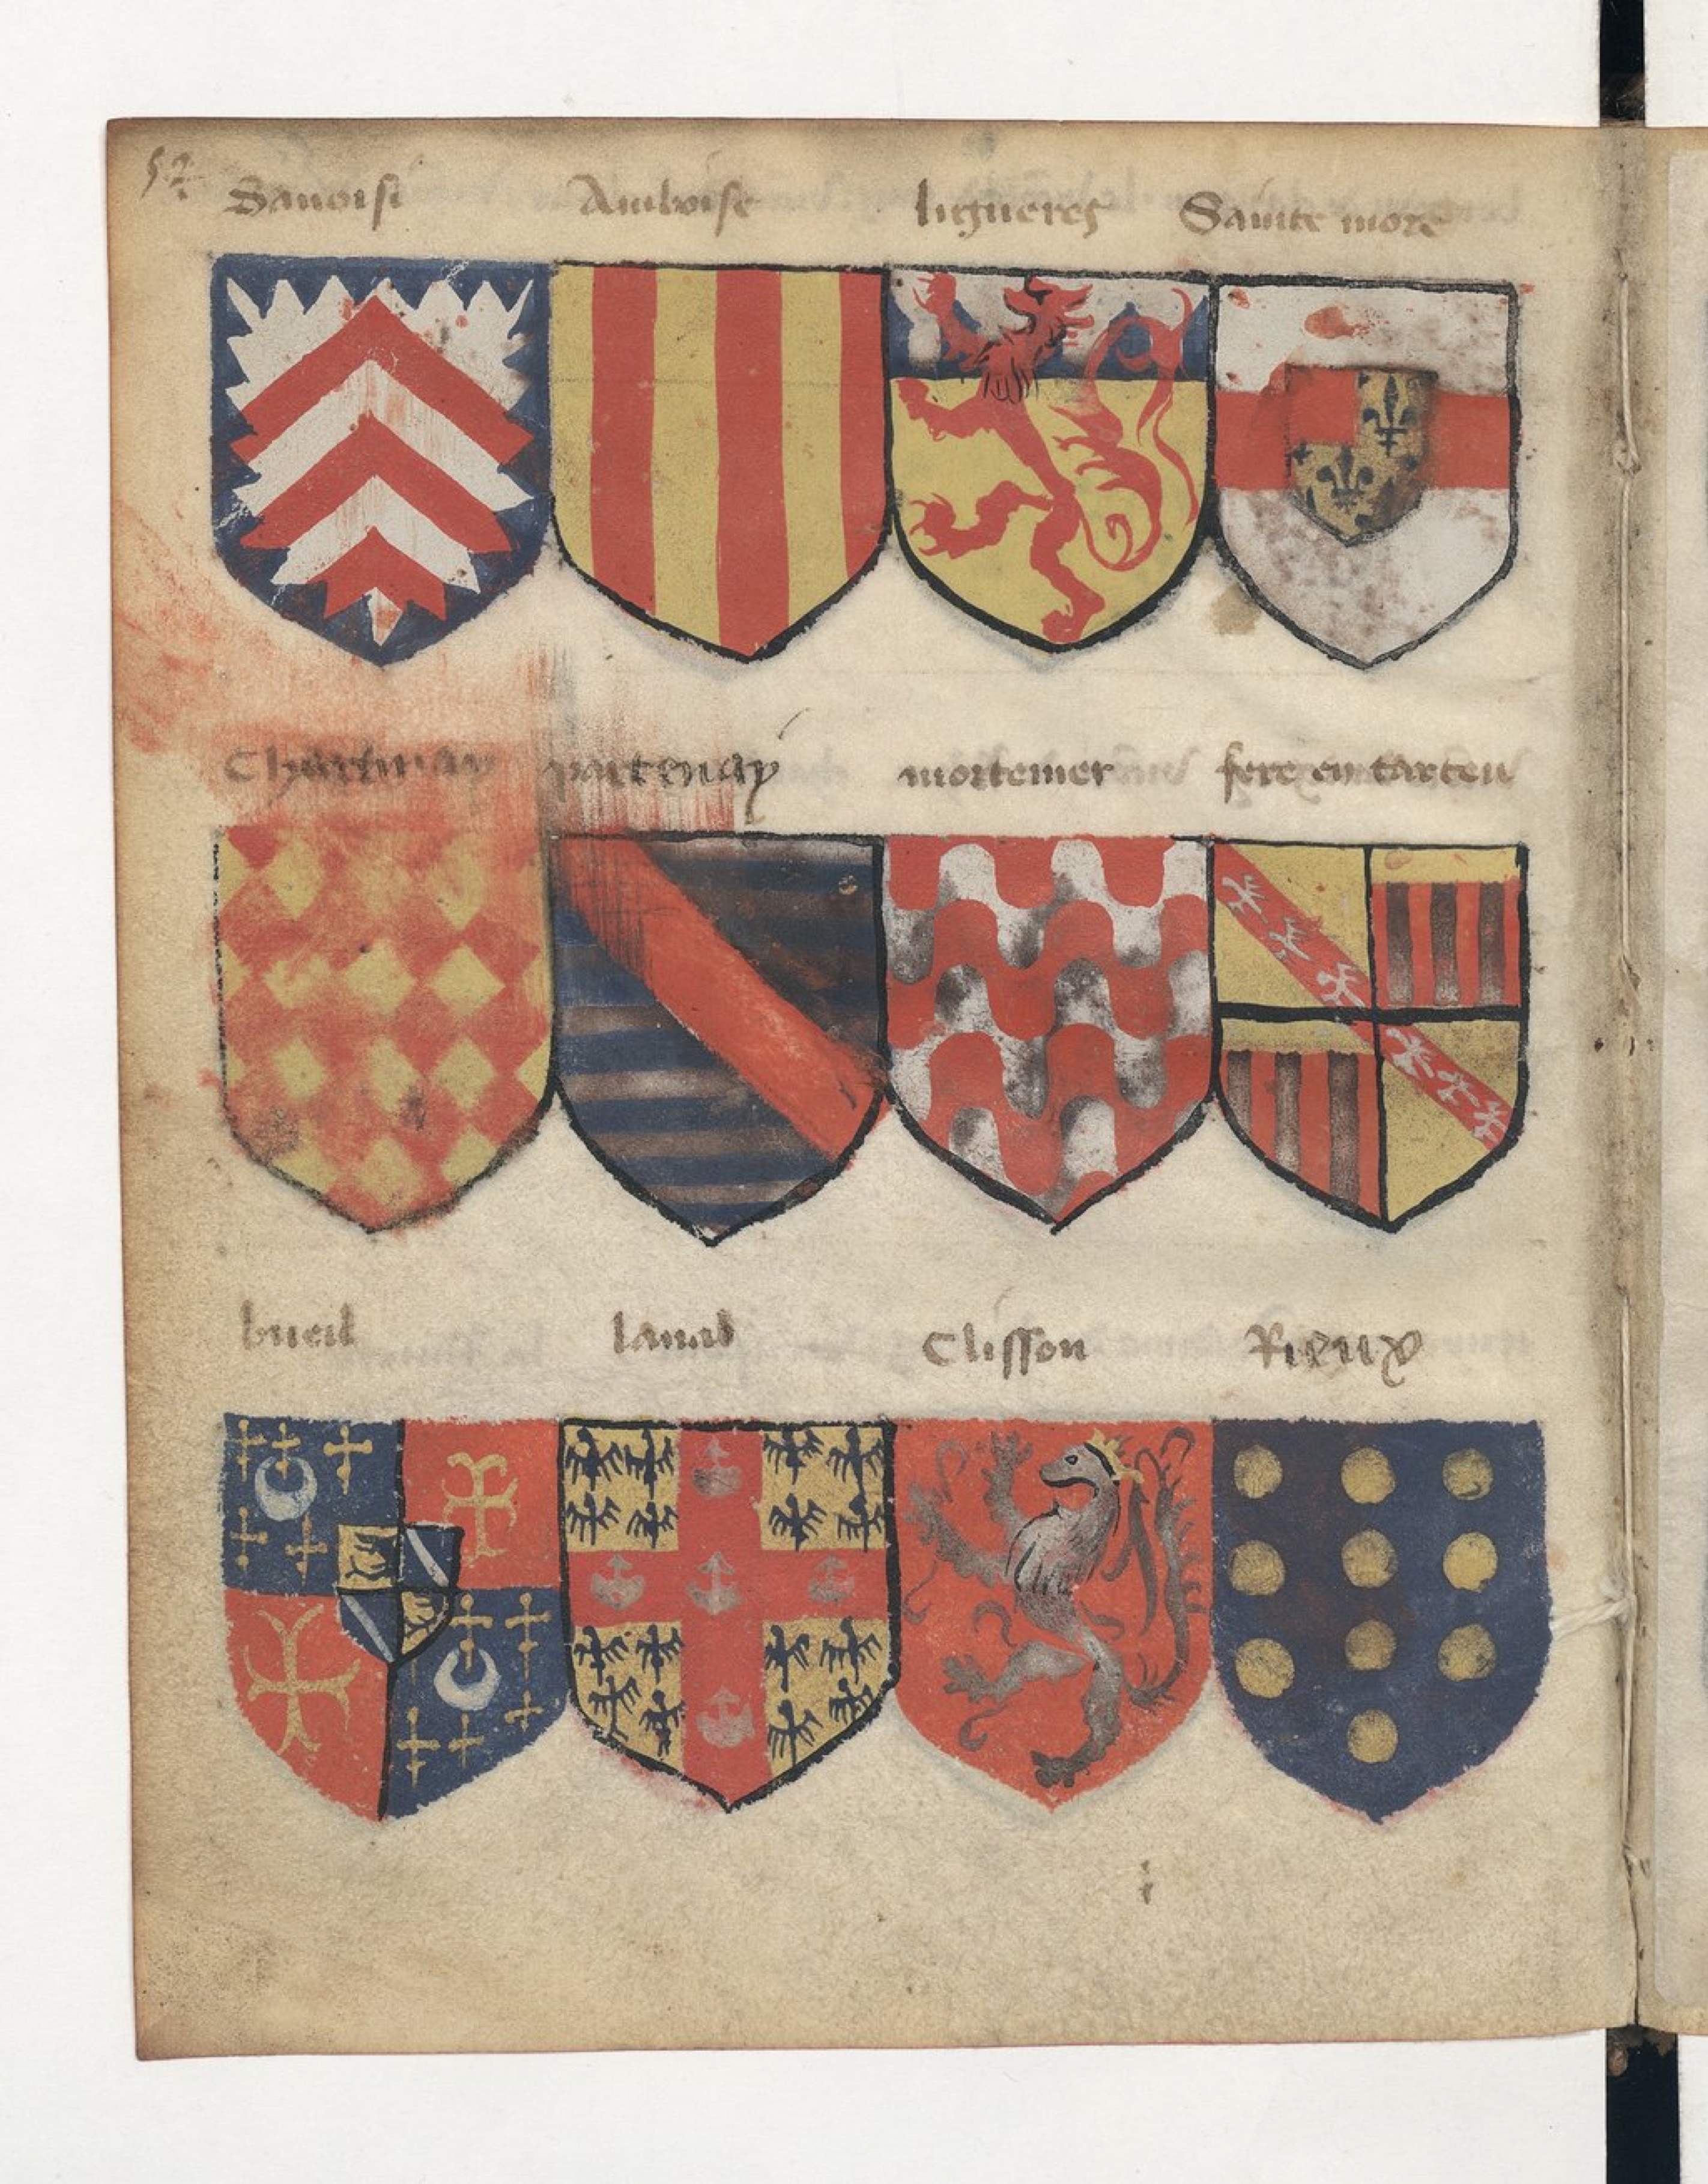 52
Sauoisi Amboise ligneres Sainte more
partenay mortemer fere en tarten
bueil laual Clisson Rieux